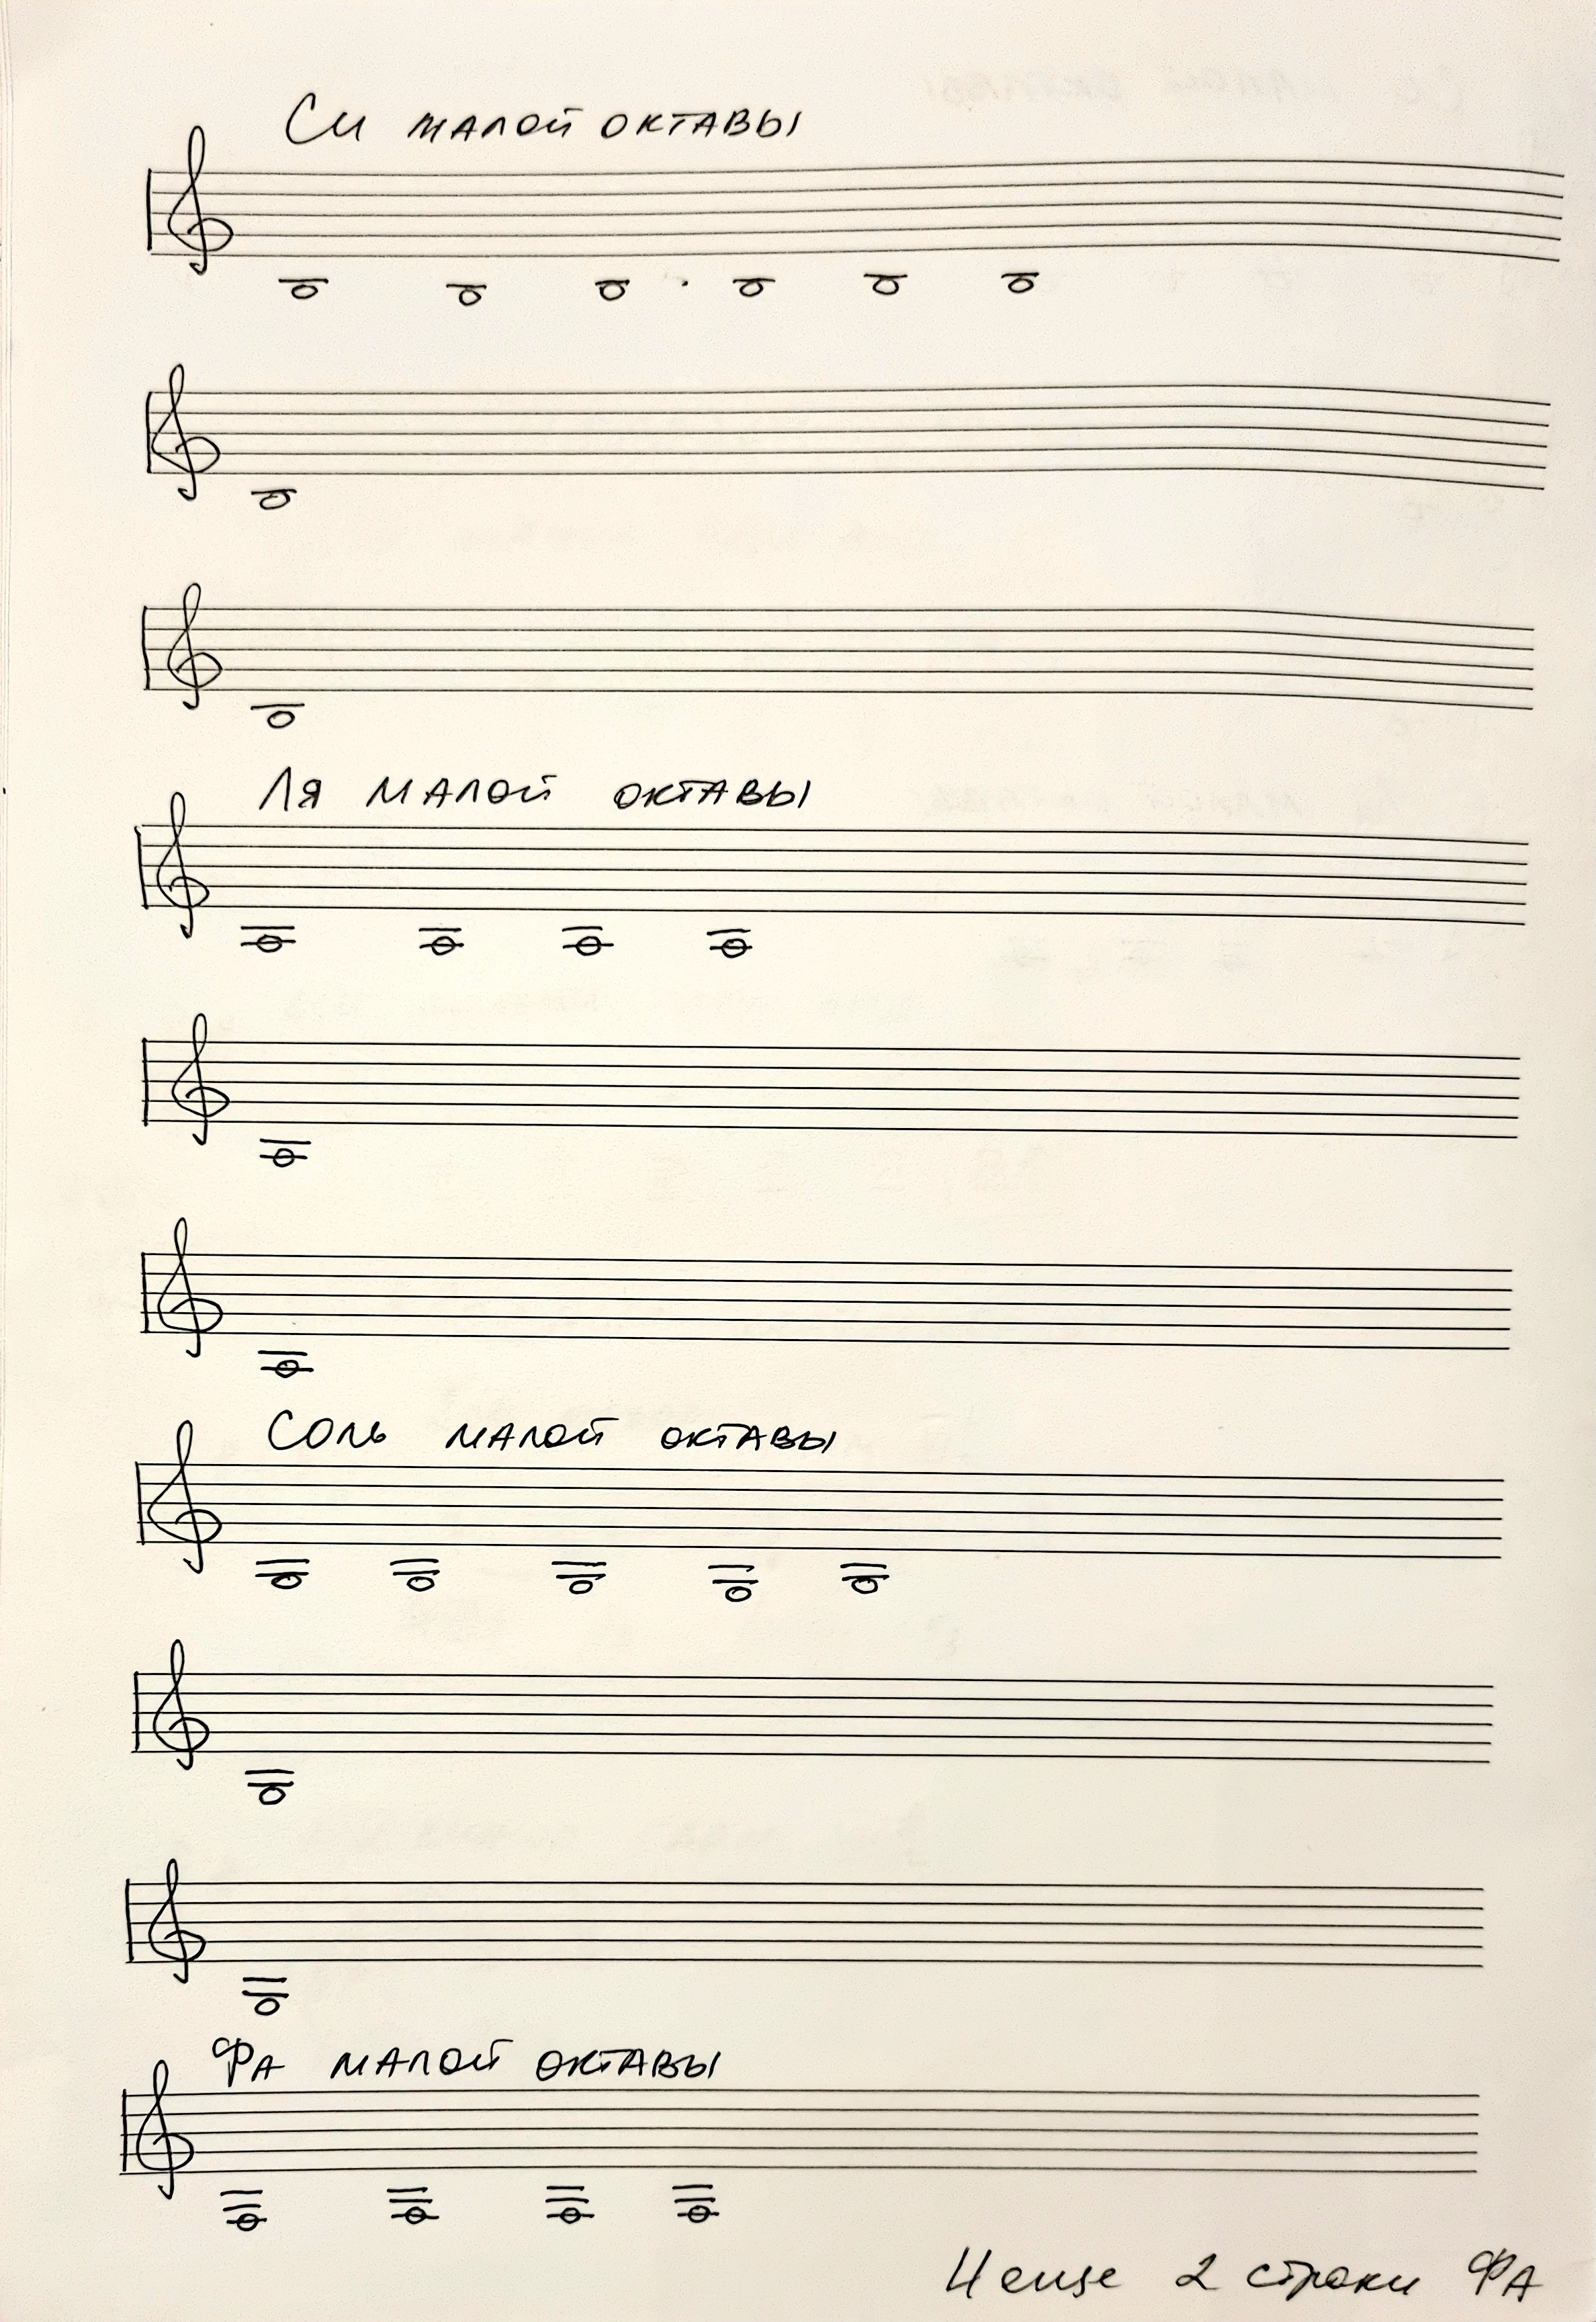 Си малой октавы
Ля малой октавы
Соль малой октавы
Фа малой октавы
И еще 2 строки Фа